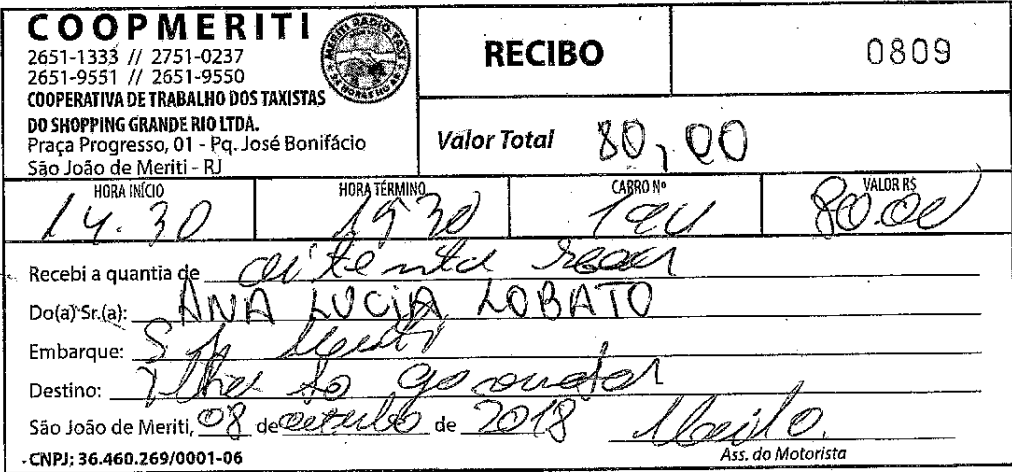 COOPMERITI
2651-1333 // 2751-0237
2651-9551 // 2651-9550
COOPERATIVA DE TRABALHO DOS TAXISTAS
DO SHOPPING GRANDE RIO LTDA.
Praça Progresso, 01 - Pq. José Bonifácio
São João de Meriti - RJ
MERITI RADIO TAXI
24 HORAS NO AR
RECIBO
0809
Valor Total 80,00
HORA INÍCIO HORA TÉRMINO CARRO Nº VALOR R$
14.30 80.00
Recebi a quantia de oitenta reais
Do(a) Sr.(a): ANA LUCIA LOBATO
Embarque: S J Meriti
Destino: Ilha do governador
São João de Meriti, 08 de outubro de 2018
CNPJ: 36.460.269/0001-06 Ass. do Motorista